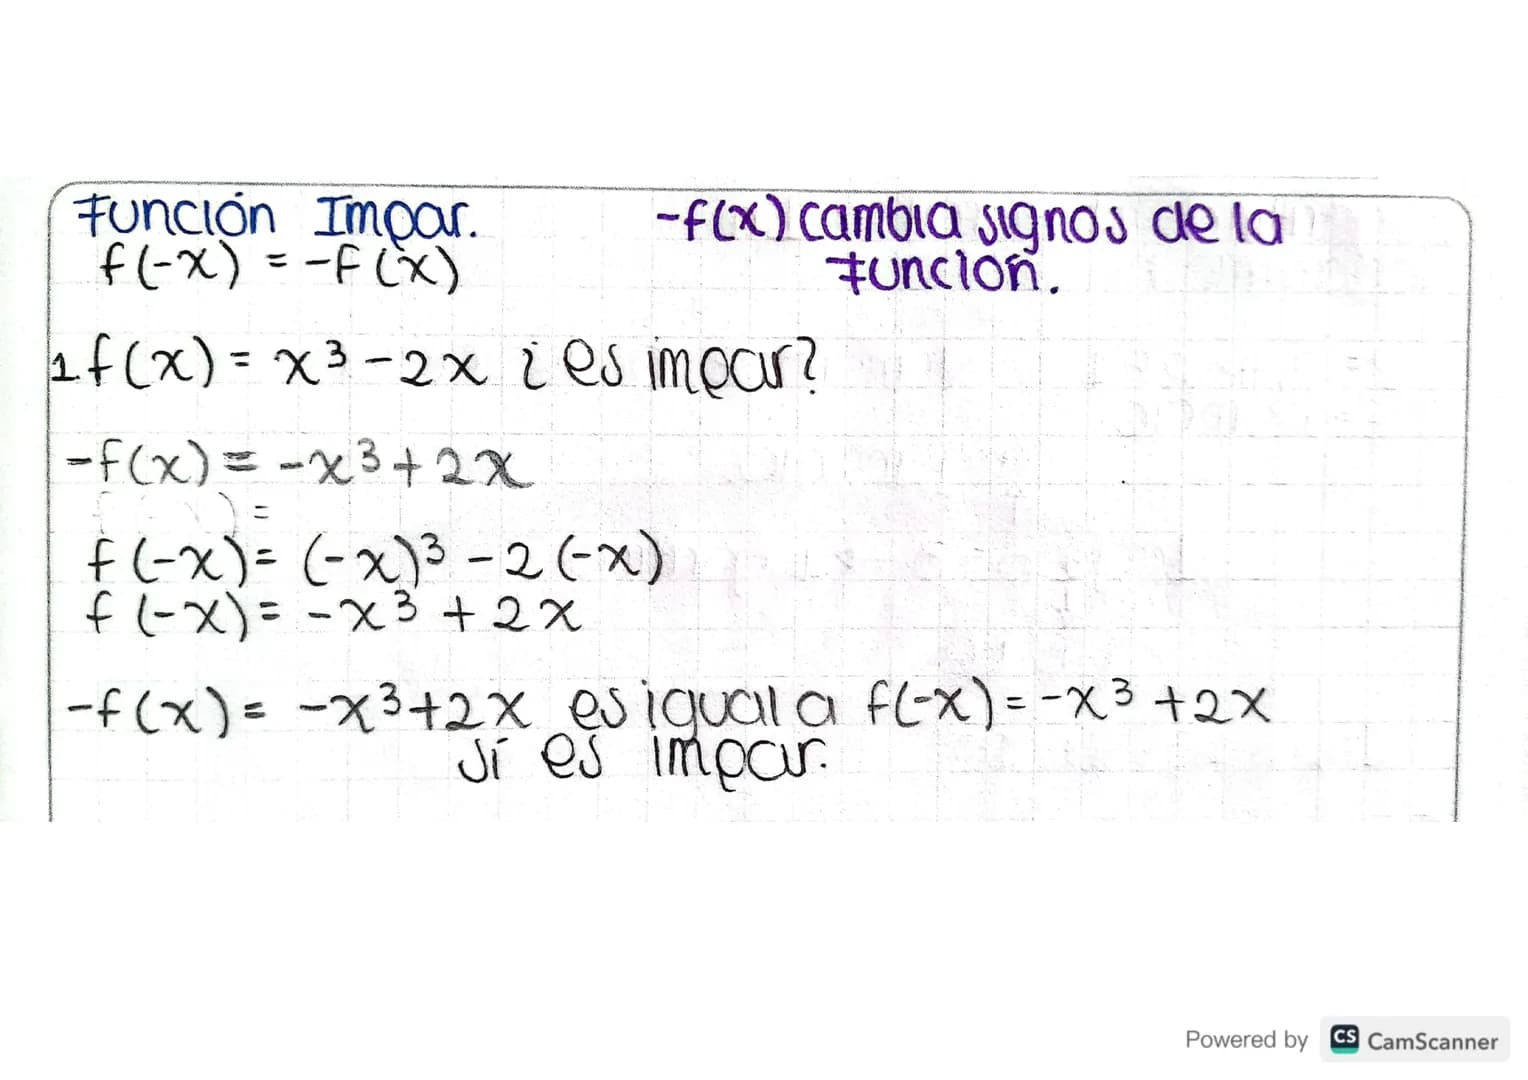 Función Impar.
f(-x) = -f(x)
-f(x) cambia signos de la
función.
1 f(x) = x³ - 2x ¿es impar?
-f(x) = -x³ + 2x
=
f(-x) = (-x)³ - 2(-x)
f(-x) = -x³ + 2x
-f(x) = -x³+2x es igual a f(-x) = -x³ +2x
sí es impar.
Powered by CS CamScanner